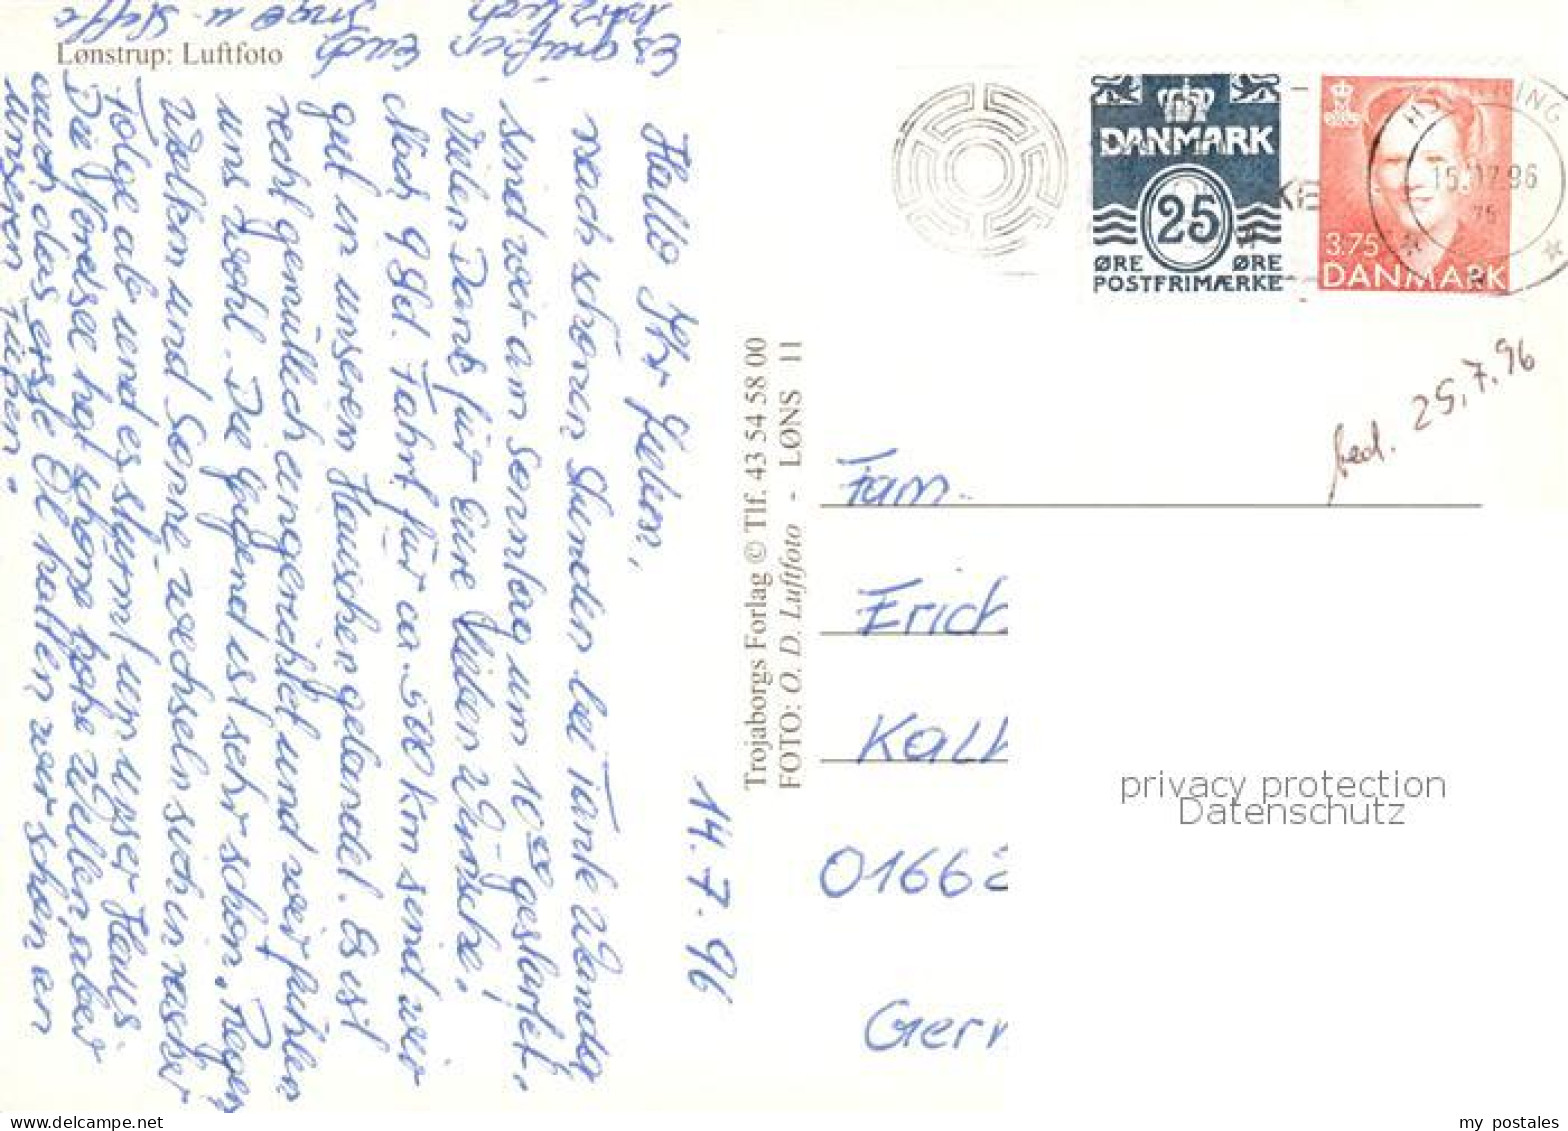 Lønstrup: Luftfoto
14.7.96
Hallo Ihr Lieben,
nach schönen Stunden bei Tante Wanda
sind wir am Sonntag um 10 gestartet.
Vielen Dank für Eure lieben Wünsche!
Nach 9 Std. Fahrt für ca. 500 km sind wir
gut in unserem Häuschen gelandet. Es ist
recht gemütlich eingerichtet und wir fühlen
uns wohl. Die Gegend ist sehr schön. Regen
Wolken und Sonne wechseln sich in rascher
Folge ab und es stürmt um unser Haus
Die Nordsee hat schon hohe Wellen, aber
auch das erste Öl hatten wir schon an
unseren
Es grüßen Euch
herzlich Inge u. Steffi
Trojaborgs Forlag © Tlf. 43 54 58 00
FOTO: O. D. Luftfoto - LØNS 11
DANMARK
25
ØRE ØRE
POSTFRIMÆRKE
3.75
DANMARK
15.07.96
bed. 25.7.96
Fam.
Erich
Kall
0166
Ger
privacy protection
Datenschutz
my postales